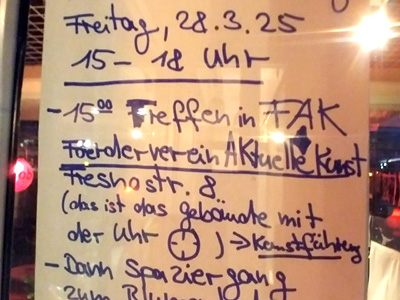 Freitag, 28.3.25
15 - 18 Uhr
- 15⁰⁰ Treffen in FAK
Förderverein AKtuelle Kunst
str. 8
(das ist das gebäude mit
der Uhr ) => Kunstführung
- Dann Spaziergang
zum